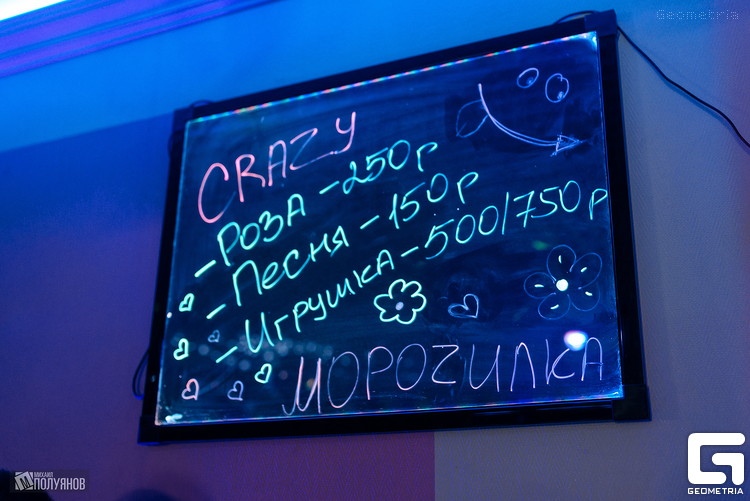 Geometria
CRAZY
- РОЗА - 250р
- Песня - 150р
- Игрушка - 500/750р
МОРОZИЛКА
МИХАИЛ
ПОЛУЯНОВ
G
GEOMETRIA